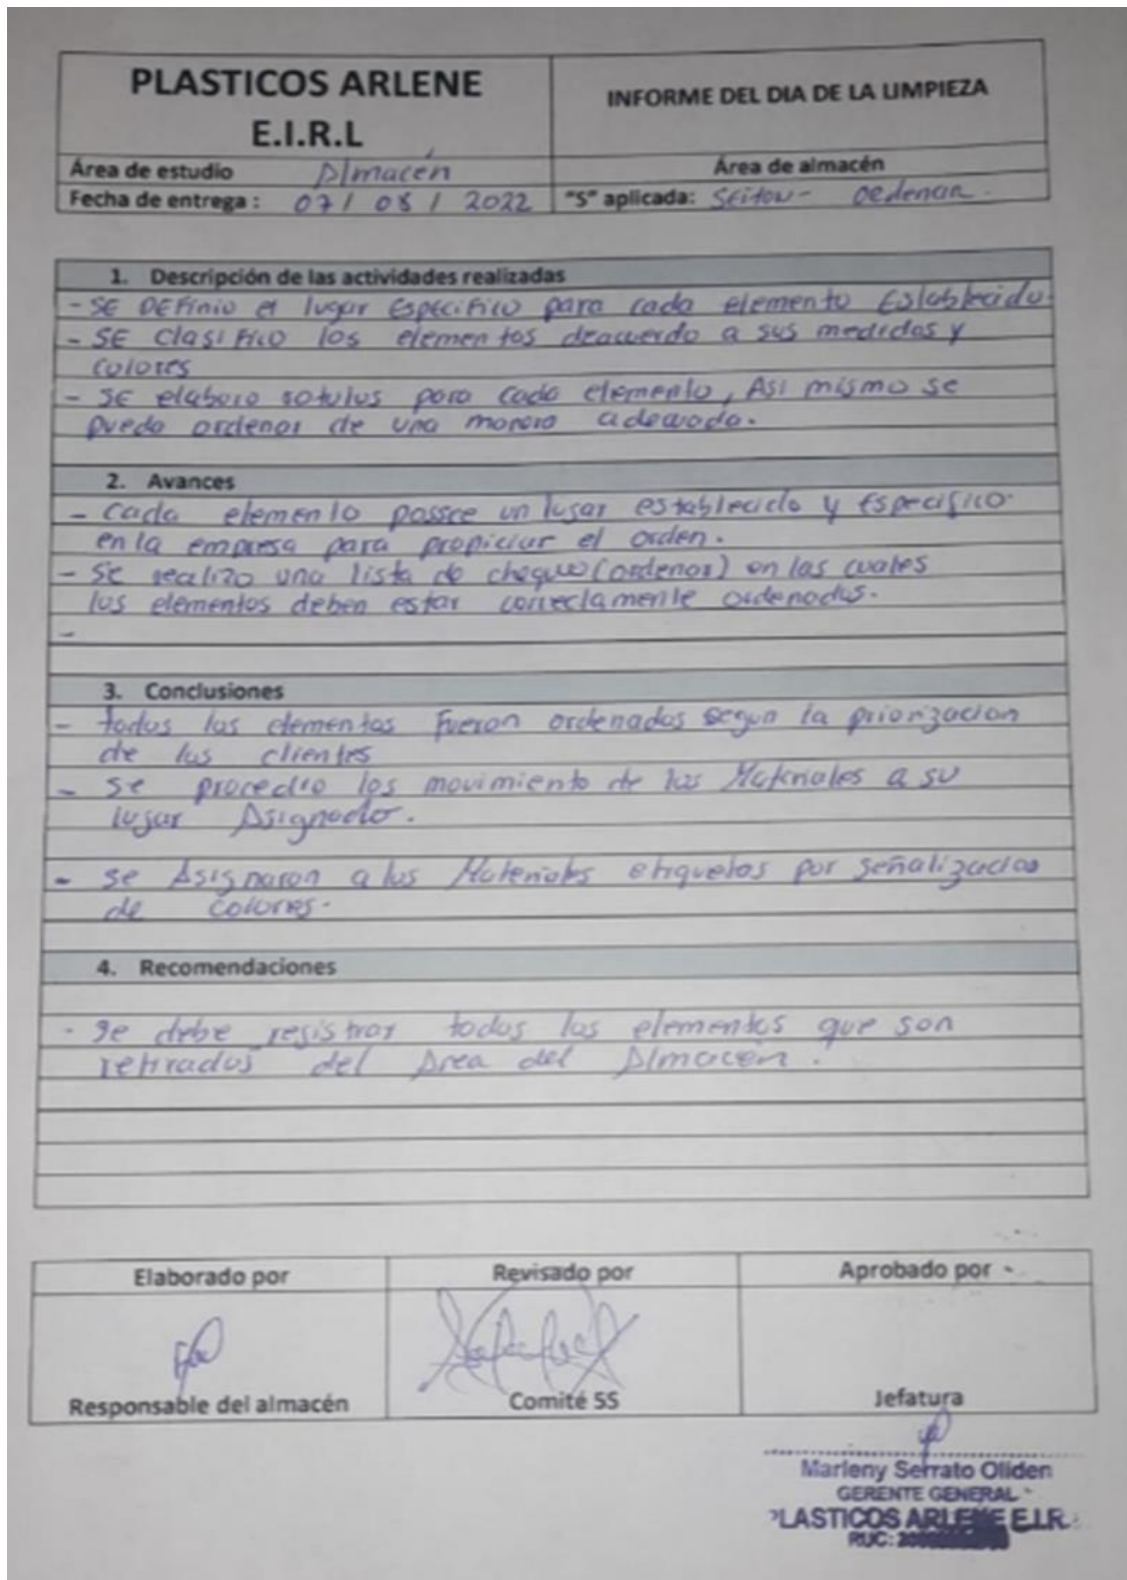 PLASTICOS ARLENE
E.I.R.L
INFORME DEL DIA DE LA LIMPIEZA
Área de estudio Almacén
Área de almacén
Fecha de entrega : 07 / 08 / 2022
"S" aplicada: SEitow - Oedenar.
1. Descripción de las actividades realizadas
- SE DEFinio el lugar Especifico para cada elemento Establecido.
- SE clasifico los elementos deacuerdo a sus medidas y
colores
- SE elaboro rotulos para cada elemento, Asi mismo se
pueda ordenar de una manera adecuada.
2. Avances
- Cada elemento possee un lugar establecido y Especifico
en la empresa para propiciar el orden.
- Se realizo una lista de cheque (ordenar) en las cuales
los elementos deben estar correctamente ordenados.
-
3. Conclusiones
- todos los elementos Fueron ordenados segun la priorizacion
de los clientes
- se procedio los movimiento de los Materiales a su
lugar Asignado.
- se Asignaron a los Materiales etiquetas por señalizacion
de colores.
4. Recomendaciones
- Se debe registrar todos los elementos que son
retirados del Area del Almacén.
Elaborado por
Revisado por
Aprobado por
Responsable del almacén
Comité 5S
Jefatura
Marleny Serrato Oliden
GERENTE GENERAL
PLASTICOS ARLENE E.I.R.
RUC: 20